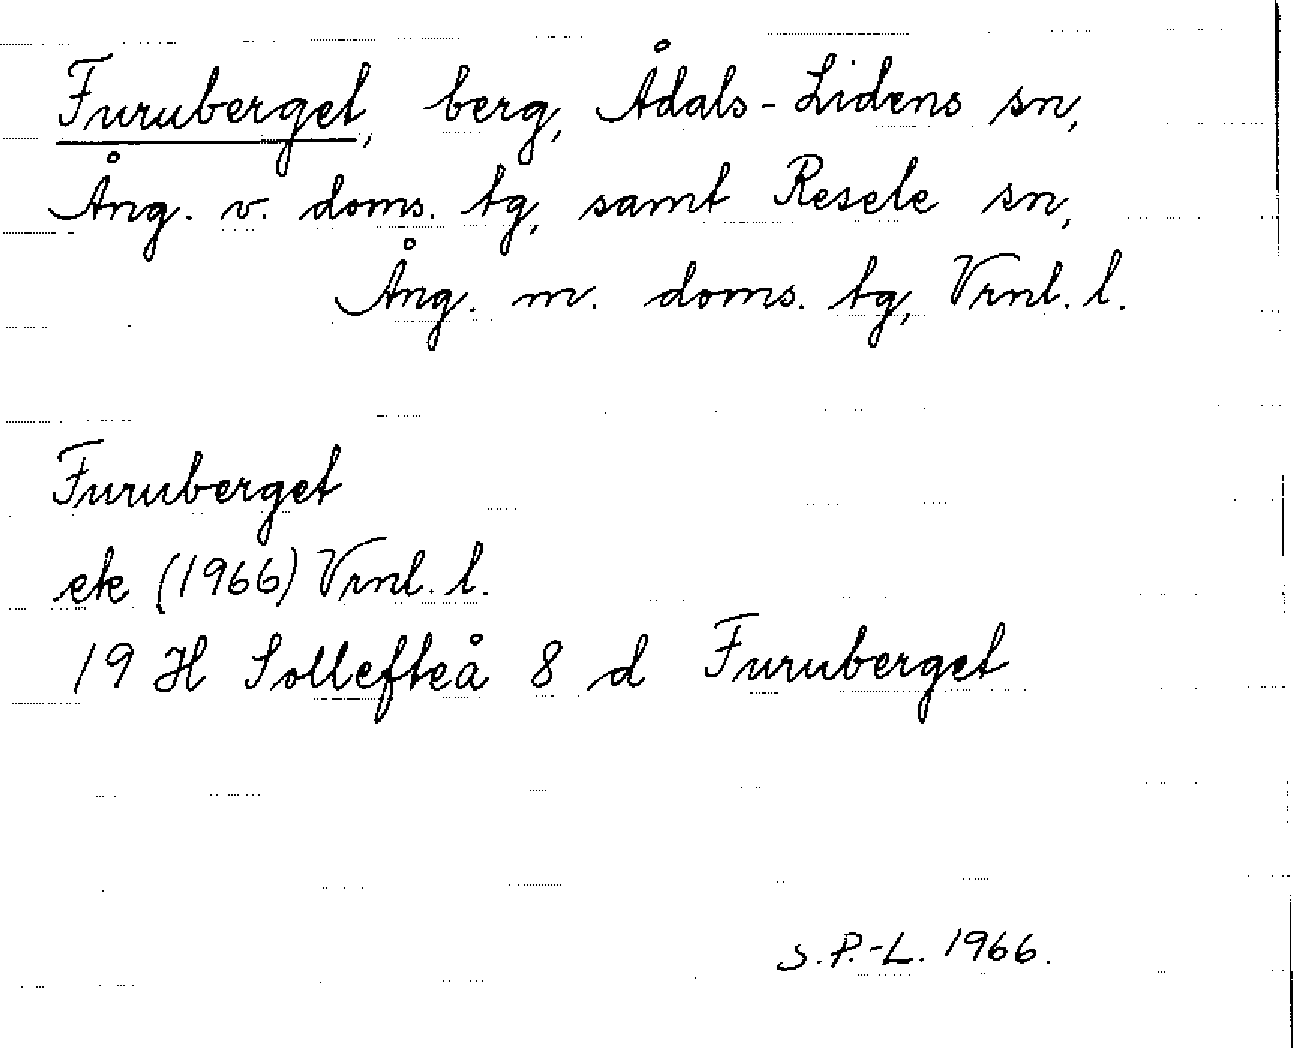 Furuberget, berg, Ådals-Lidens sn,
Ång. v. doms. tg, samt Resele sn,
Ång. m. doms. tg, Vrnl. l.
Furuberget
ek (1966) Vrnl. l.
19 H Sollefteå 8 d Furuberget
S.P.-L. 1966.